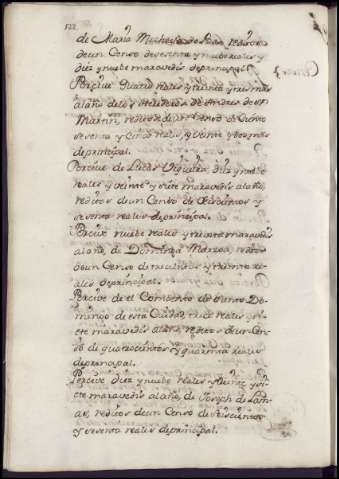 de Maria
de un Censo de sesenta y nuebe reales y
diez y nuebe maravedis de principal.
Percive quatro reales y treinta y tres mrs
al año de los de Andres de Sn
Martin, reditos de un Censo de Ciento
sesenta y cinco reales, y veinte y dos mrs
de principal.
Percive de Lucas diez y nuebe
reales y veinte y siete maravedis al año,
reditos de un Censo de Seiscientos y
sesenta reales de principal.
Percive nuebe reales y treinta maravedis
al año, de Dominga reditos
de un Censo de trescientos y treinta rea-
les de principal.
Percive de el Combento de Santo Do-
mingo de esta Ciudad, trece reales y si-
ete maravedis al año, reditos de un Cen-
so de quatrocientos y quarenta reales
de principal.
Percive diez y nuebe reales y veinte y si-
ete maravedis al año, de Joseph de Lam-
as, reditos de un Censo de seiscientos
y sesenta reales de principal.